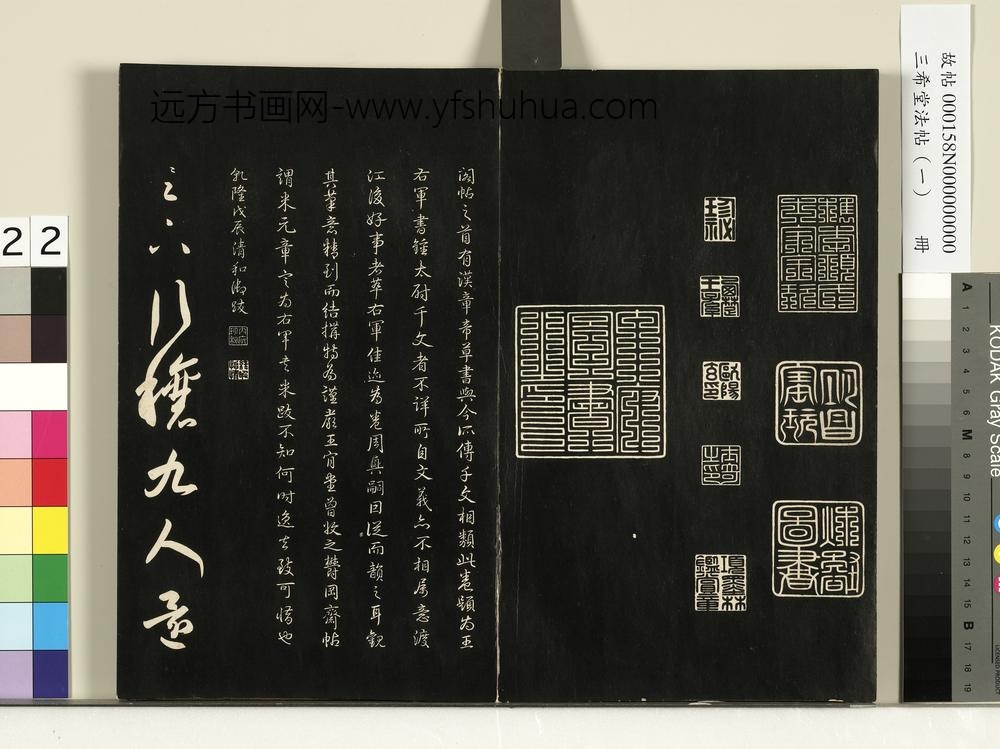 远方书画网-www.yfshuhua.com
故帖 000158N000000000
三希堂法帖(一) 冊
珍秘
歐陽玄印
項墨林鑒賞章
煒敬圖書
閣帖之首有漢章帝草書與今所傳千文相類此卷題為王
右軍書鍾太尉千文者不詳所自文義亦不相属意渡
江後好事者萃右軍佳迹為卷周興嗣因從而韻之耳觀
其筆意精到而結構特為謹嚴王肯堂曾收之欝岡齋帖
謂米元章定為右軍書米跋不知何時逸去致可惜也
乾隆戊辰清和御跋
九人
KODAK Gray Scale
A 1 2 3 4 5 6 M 8 9 10 11 12 13 14 15 B 17 18 19
22